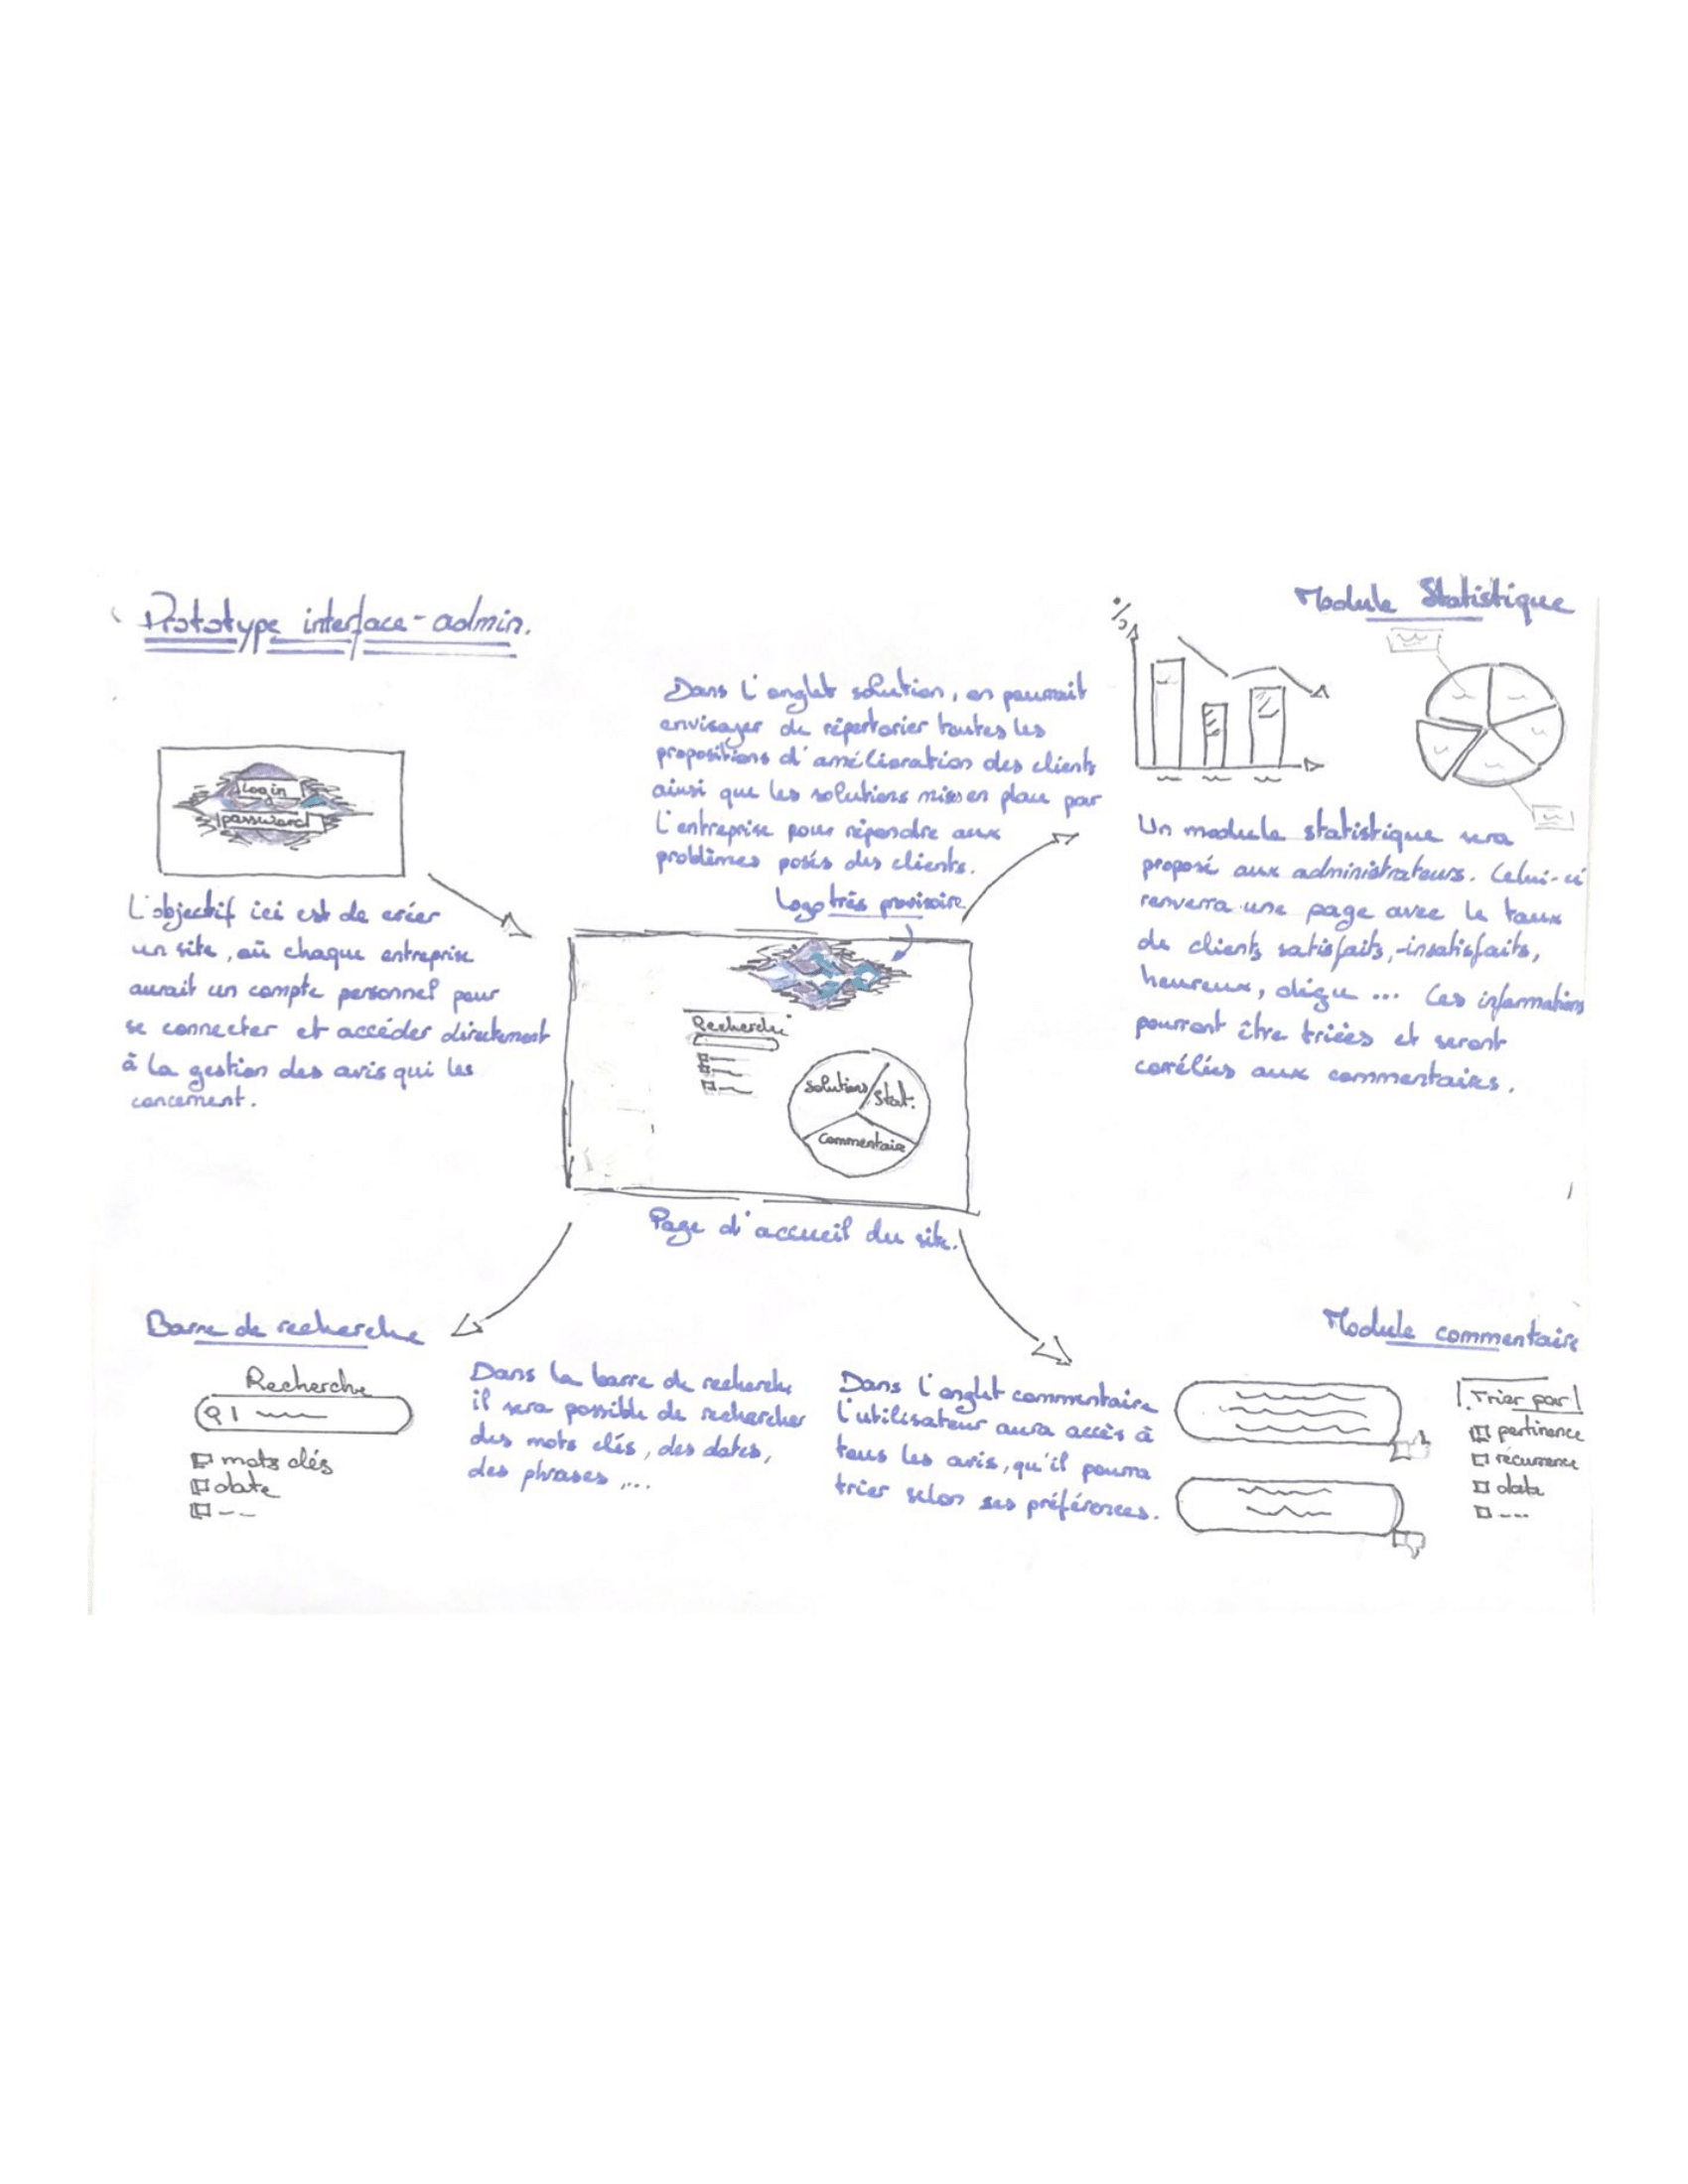 Prototype interface-admin.
Login
password
L'objectif ici est de créer
un site, où chaque entreprise
aurait un compte personnel pour
se connecter et accéder directement
à la gestion des avis qui les
concernent.
Dans l'onglet solution, on pourrait
envisager de répertorier toutes les
propositions d'amélioration des clients
ainsi que les solutions mises en place par
l'entreprise pour répondre aux
problèmes posés des clients.
Logo très provisoire
Recherche
Solutions
Stat.
Commentaire
Page d'accueil du site.
Module Statistique
%
Un module statistique sera
proposé aux administrateurs. Celui-ci
renverra une page avec le taux
de clients satisfaits,-insatisfaits,
heureux, déçu ... Ces informations
pourront être triées et seront
corélées aux commentaires.
Barre de recherche
Recherche
mots clés
date
---
Dans la barre de recherche
il sera possible de rechercher
des mots clés, des dates,
des phrases ,...
Module commentaire
Dans l'onglet commentaire
l'utilisateur aura accès à
tous les avis, qu'il pourra
trier selon ses préférences.
Trier par
pertinence
récurrence
date
---